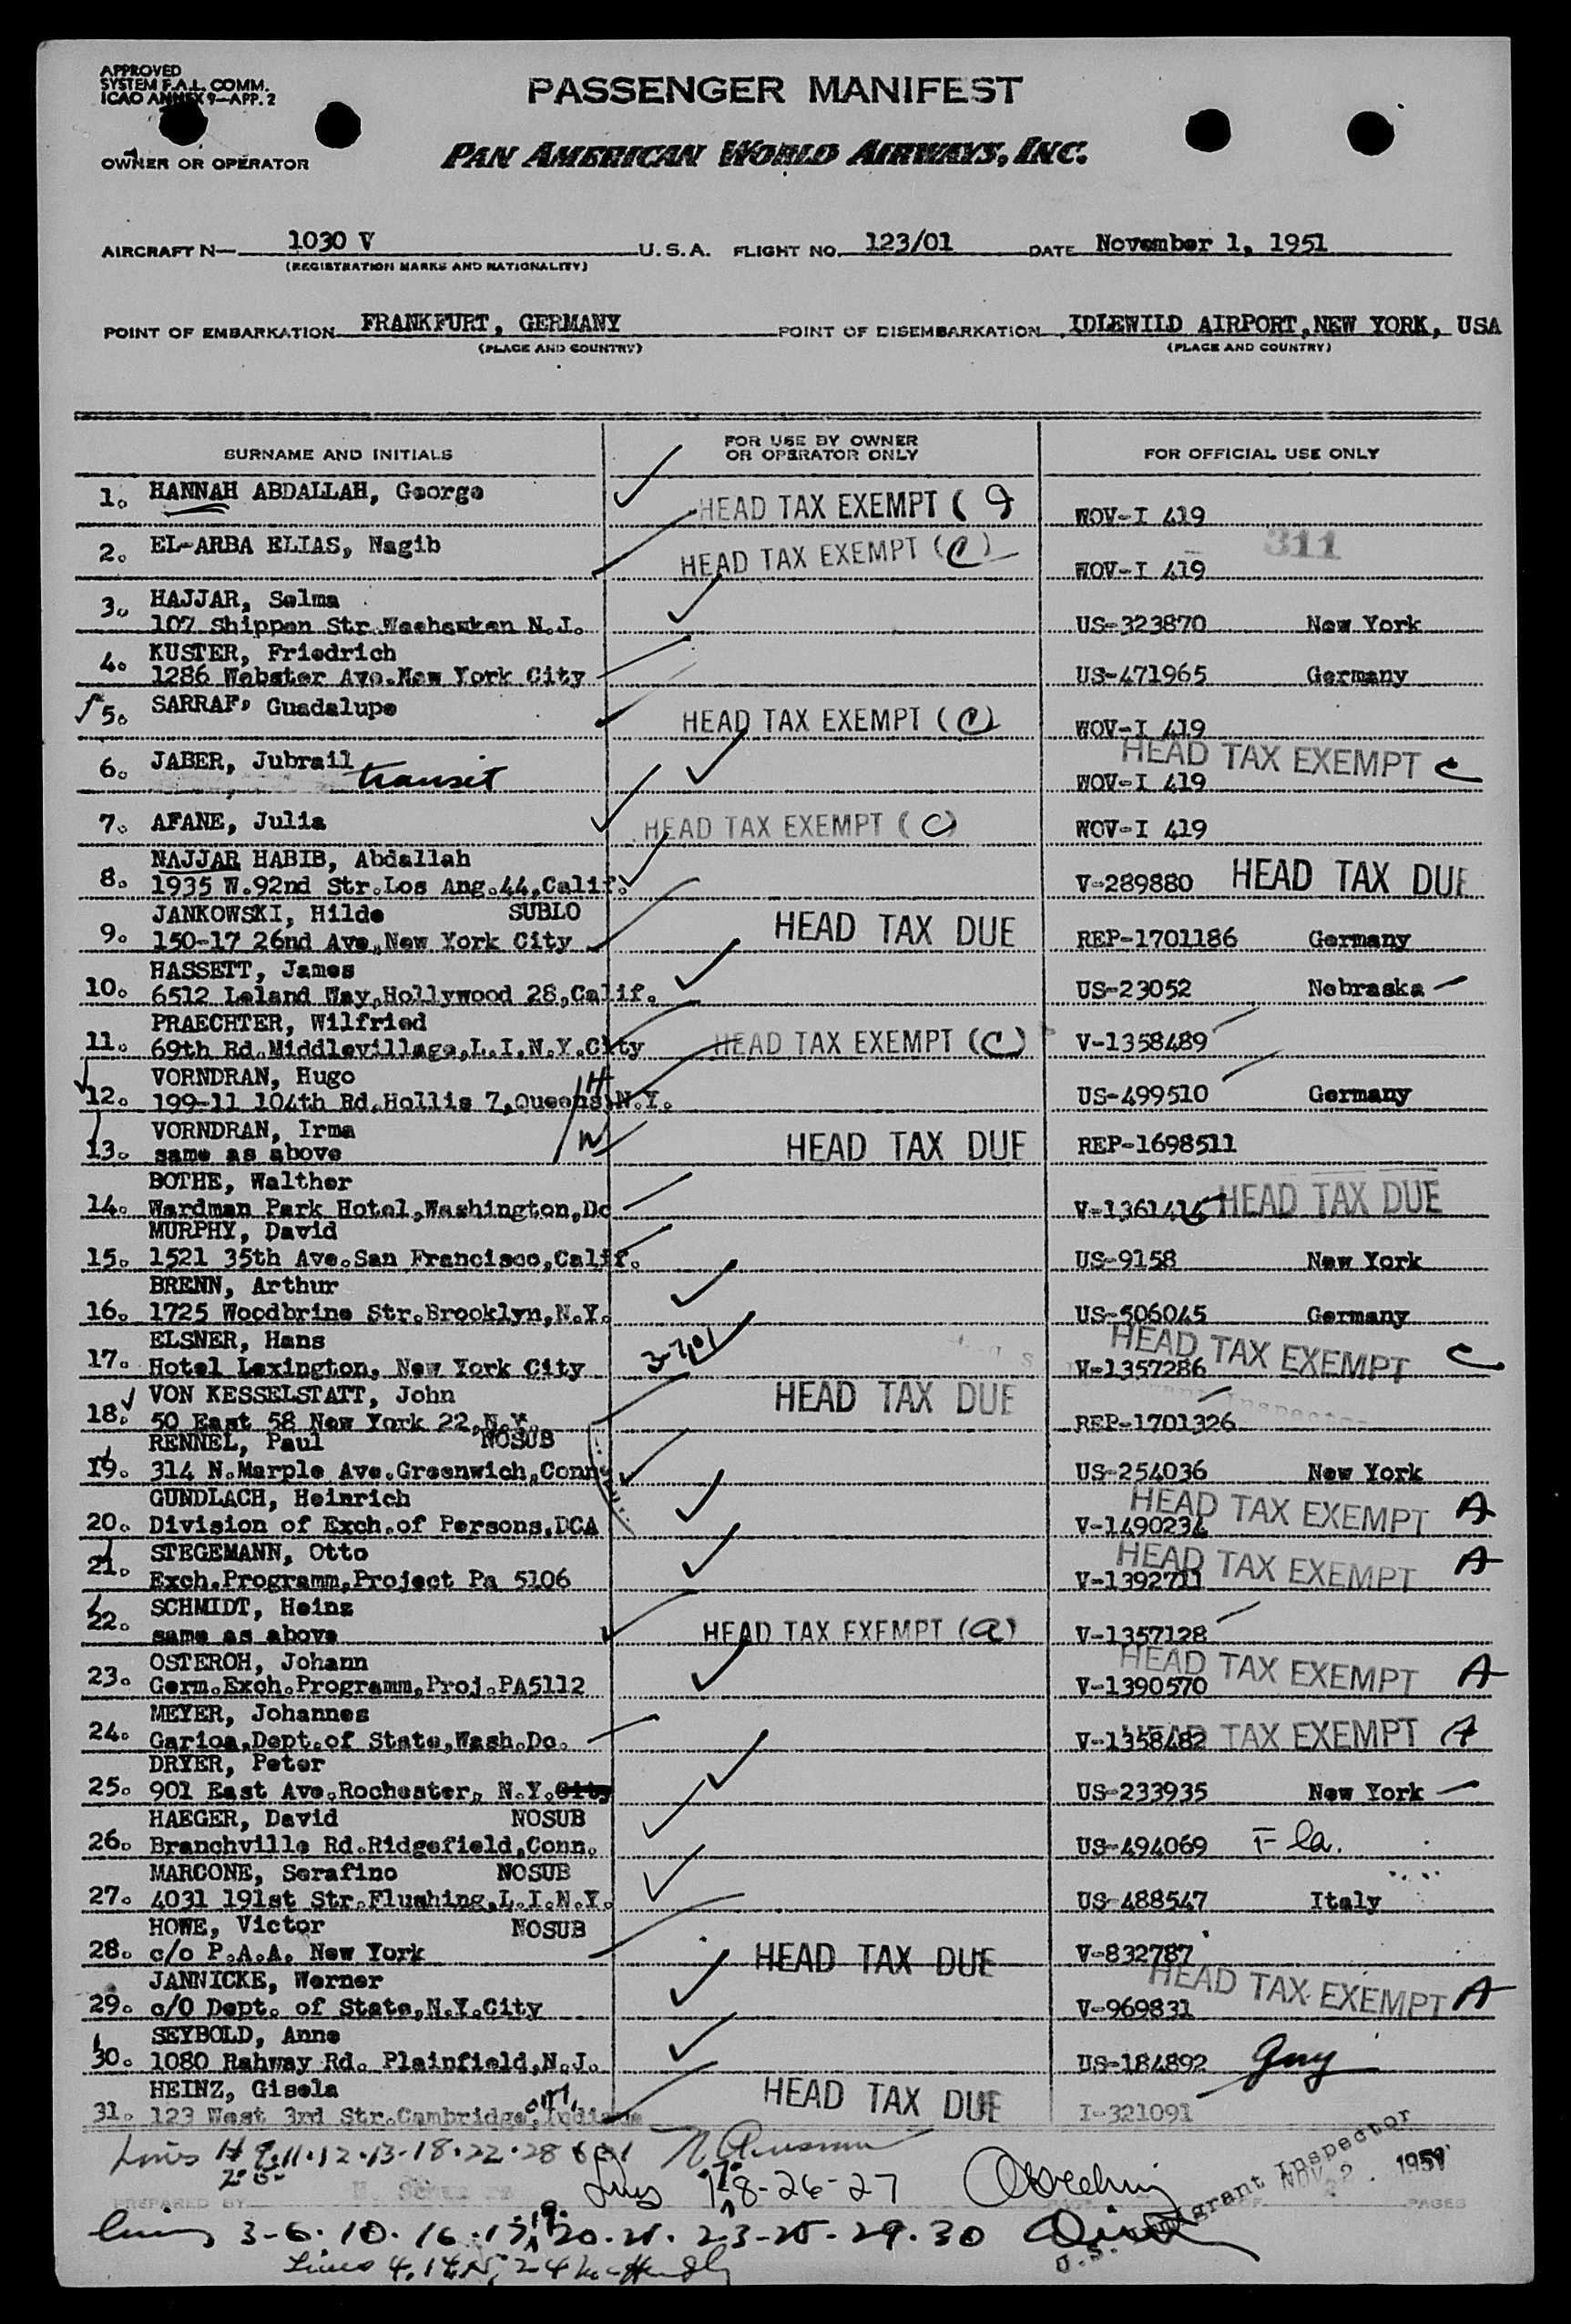 APPROVED
SYSTEM F.A.L. COMM.
ICAO ANNEX 9—APP. 2
PASSENGER MANIFEST
OWNER OR OPERATOR
PAN AMERICAN WORLD AIRWAYS, INC.
AIRCRAFT N— 1030 V U.S.A. FLIGHT NO. 123/01 DATE November 1, 1951
(REGISTRATION MARKS AND NATIONALITY)
POINT OF EMBARKATION FRANKFURT, GERMANY POINT OF DISEMBARKATION IDLEWILD AIRPORT, NEW YORK, USA
(PLACE AND COUNTRY) (PLACE AND COUNTRY)
SURNAME AND INITIALS FOR USE BY OWNER OR OPERATOR ONLY FOR OFFICIAL USE ONLY
1. HANNAH ABDALLAH, George HEAD TAX EXEMPT ( WOV-I 419
311
2. EL-ARBA ELIAS, Nagib HEAD TAX EXEMPT (C) WOV-I 419
3. HAJJAR, Selma
107 Shippen Str.Weehawken N.J. US-323870 New York
4. KUSTER, Friedrich
1286 Webster Ave.New York City US-471965 Germany
5. SARRAF, Guadalupe HEAD TAX EXEMPT (C) WOV-I 419
6. JABER, Jubrail transit HEAD TAX EXEMPT C
WOV-I 419
7. AFANE, Julia HEAD TAX EXEMPT (C) WOV-I 419
8. NAJJAR HABIB, Abdallah
1935 W.92nd Str.Los Ang.44,Calif. V-289880 HEAD TAX DUE
9. JANKOWSKI, Hilde SUBLO
150-17 26nd Ave,New York City HEAD TAX DUE REP-1701186 Germany
10. HASSETT, James
6512 Leland Way,Hollywood 28,Calif. US-23052 Nebraska
11. PRAECHTER, Wilfried
69th Rd.Middlevillage,L.I.N.Y.City HEAD TAX EXEMPT (C) V-1358489
12. VORNDRAN, Hugo H
199-11 104th Rd.Hollis 7,Queens,N.Y. US-499510 Germany
13. VORNDRAN, Irma W
same as above HEAD TAX DUE REP-1698511
14. BOTHE, Walther
Wardman Park Hotel,Washington,Dc HEAD TAX DUE
15. MURPHY, David
1521 35th Ave.San Francisco,Calif. US-9158 New York
16. BRENN, Arthur
1725 Woodbrine Str.Brooklyn,N.Y. US-506045 Germany
17. ELSNER, Hans
Hotel Lexington, New York City V-1357286 HEAD TAX EXEMPT C
18. VON KESSELSTATT, John
50 East 58 New York 22,N.Y. HEAD TAX DUE REP-1701326
19. RENNEL, Paul NOSUB
314 N.Marple Ave.Greenwich,Conn US-254036 New York
20. GUNDLACH, Heinrich
Division of Exch.of Persons.DCA V-1490234 HEAD TAX EXEMPT A
21. STEGEMANN, Otto
Exch.Programm,Project Pa 5106 V-1392711 HEAD TAX EXEMPT A
22. SCHMIDT, Heinz
same as above HEAD TAX EXEMPT (a) V-1357128
23. OSTEROH, Johann
Germ.Exch.Programm,Proj.PA5112 V-1390570 HEAD TAX EXEMPT A
24. MEYER, Johannes
Garioa,Dept.of State,Wash.Dc. V-1358482 HEAD TAX EXEMPT A
25. DRYER, Peter
901 East Ave.Rochester, N.Y.City US-233935 New York
26. HAEGER, David NOSUB
Branchville Rd.Ridgefield,Conn. US-494069 Fla.
27. MARCONE, Serafino NOSUB
4031 191st Str.Flushing,L.I.N.Y. US-488547 Italy
28. HOWE, Victor NOSUB
c/o P.A.A. New York HEAD TAX DUE V-832787
29. JANNICKE, Werner
c/O Dept. of State,N.Y.City V-969831 HEAD TAX EXEMPT A
30. SEYBOLD, Anne
1080 Rahway Rd. Plainfield,N.J. US-184892 Gmy
31. HEINZ, Gisela
123 West 3rd Str.Cambridge,Indiana HEAD TAX DUE I-321091
9.11.12.13-18.22.28
8-26-27
PREPARED BY PAGE OF PAGES
U.S. Immigrant Inspector
NOV 2 1951
3-6.10.16 20.21.23-25-29.30
Lines 4.14